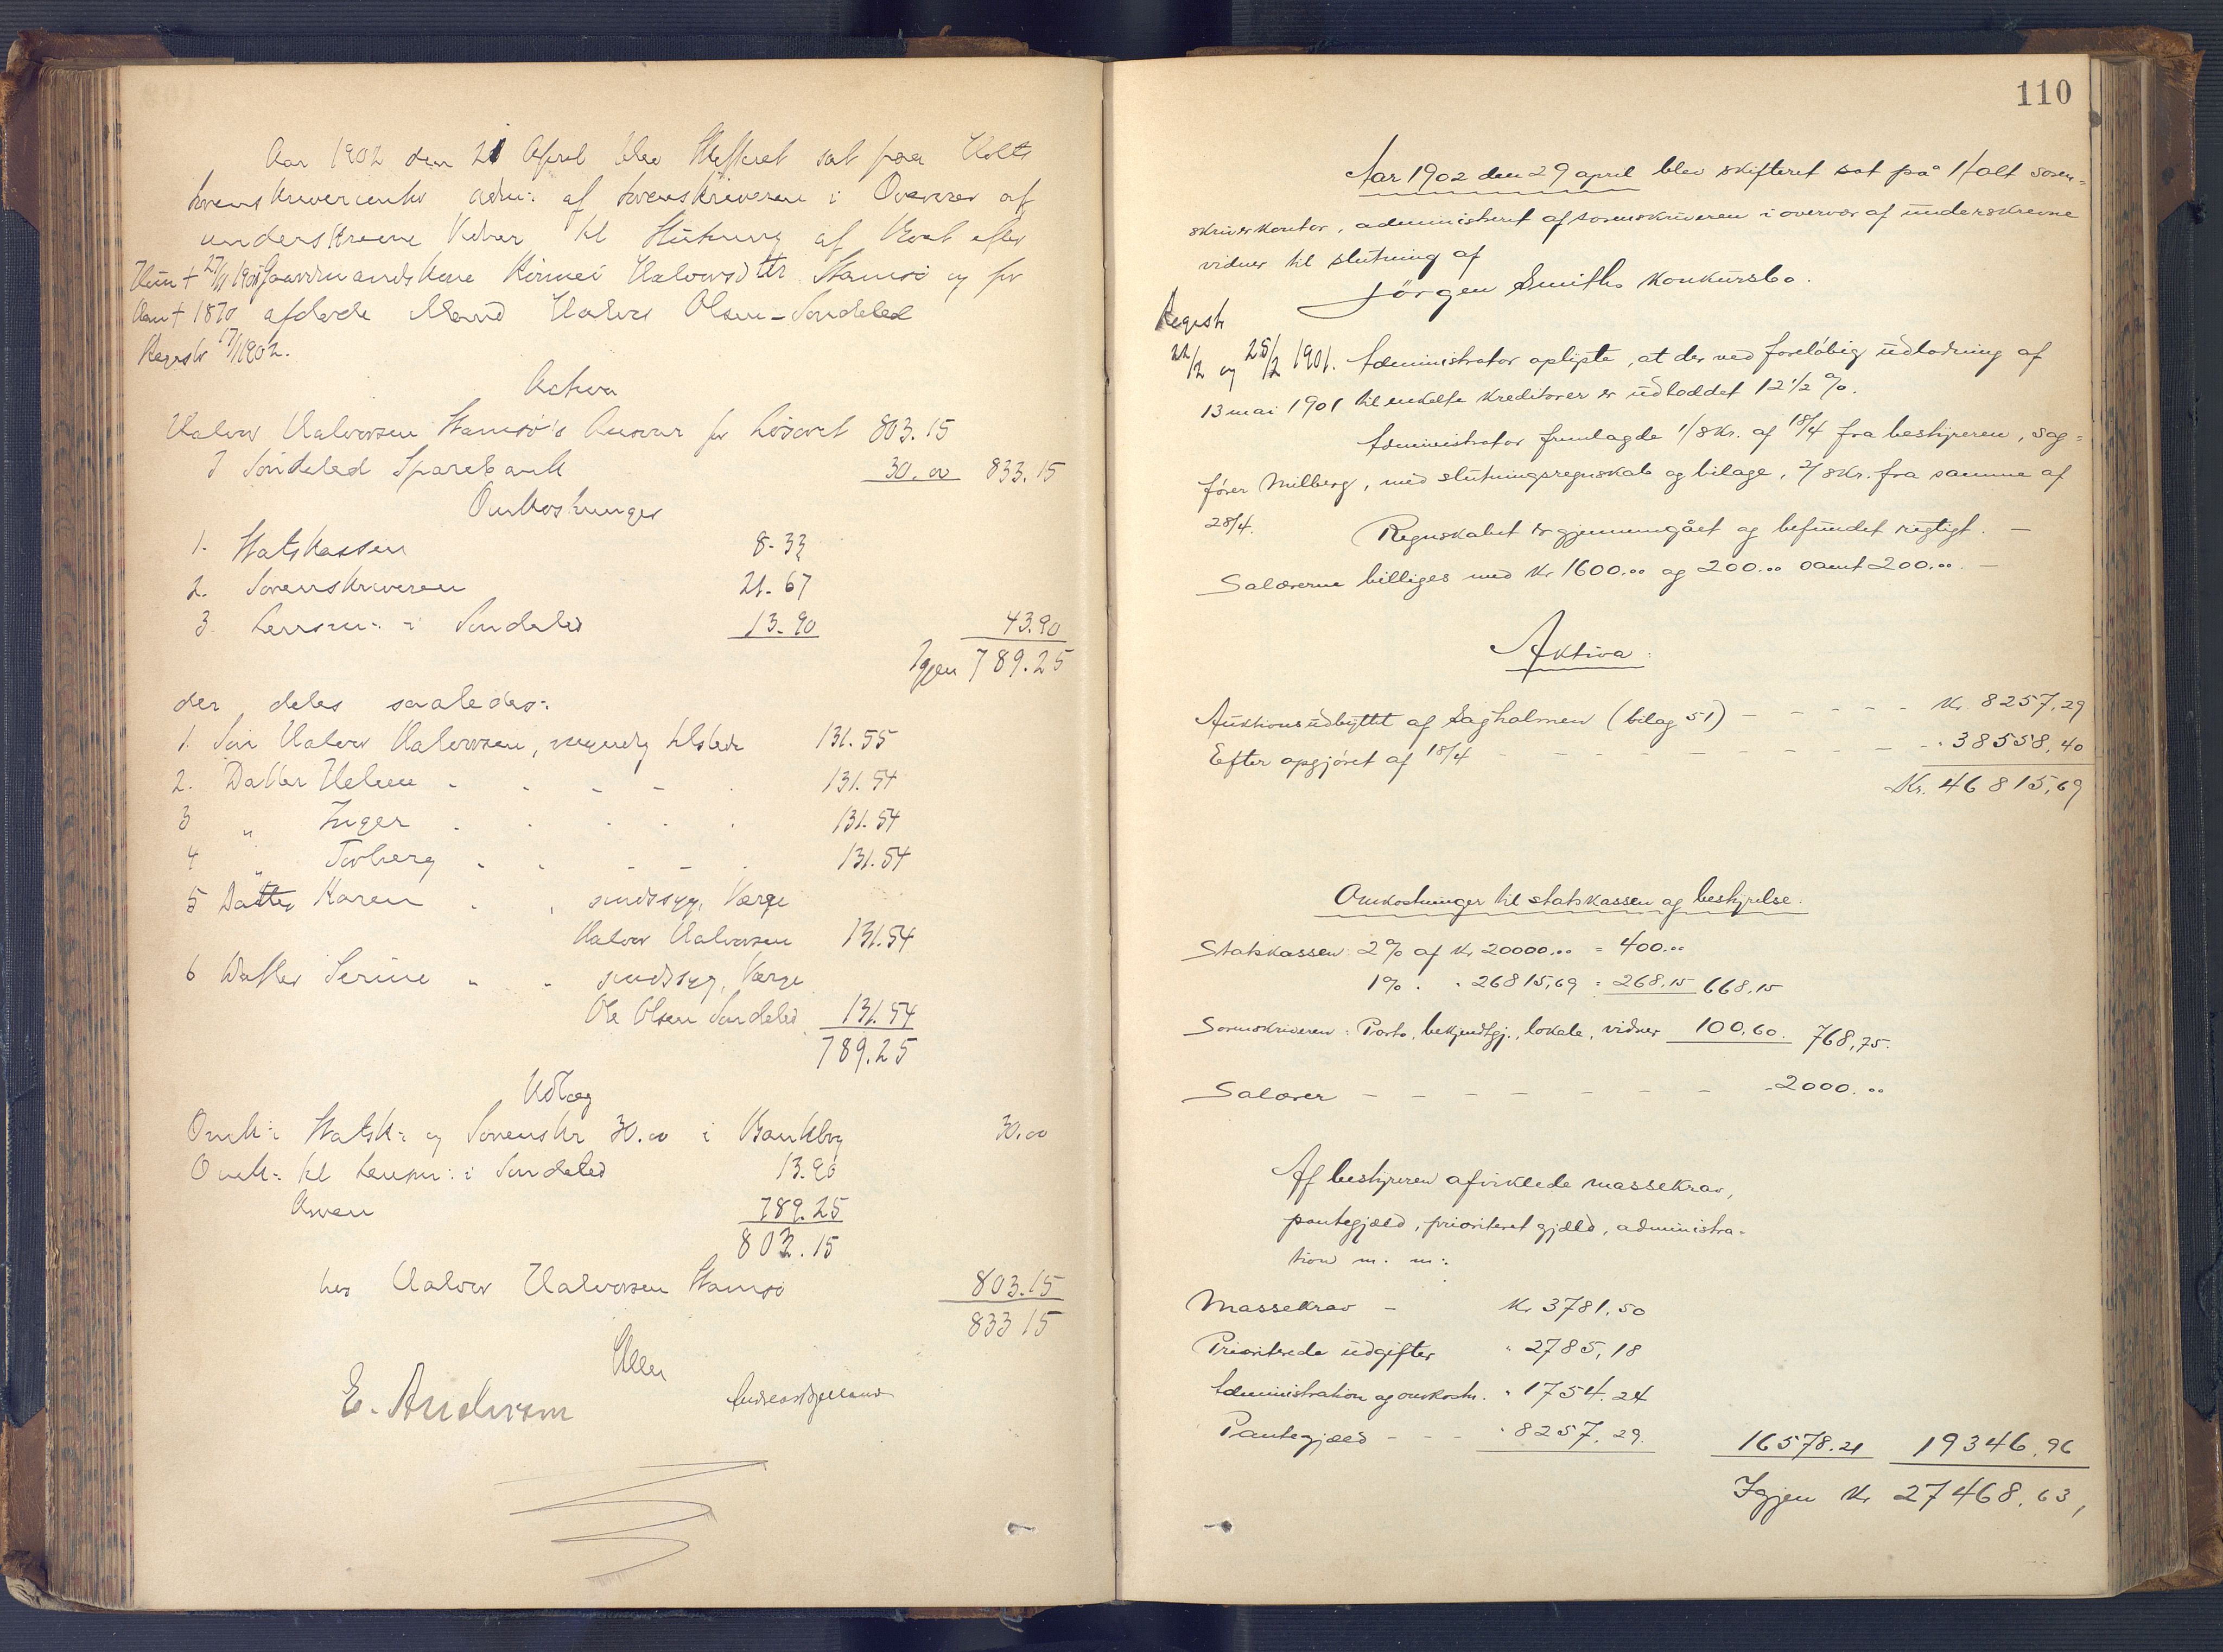 Aar 1902 den 21 April blev Skifteret sat paa Holts
Sorenskrivercontor adm: af Sorenskriveren i Overvær af
underskrevne Vidner til Slutning af Boet efter
Hun + 27/11 1901 Gaardmandskone Kirsnei Halvorsdtr Stamsö og før
Han + 1870 afdøde Mand Halvor Olsen-Søndeled
Registr 17/1 1902.
Activa
Halvor Halvorsen Stamsö's Ansvar for Lösöret 803.15
I Söndeled Sparebank 30.00 833.15
Omkostninger
1. Statskassen 8.33
2. Sorenskriveren 21.67
3. Lensm: i Søndeled 13.90 43.90
Igjen 789.25
der deles saaledes:
1. Søn Halvor Halvorsen, myndig tilstede 131.55
2. Datter Helene - - - - - 131.54
3 " Inger - - - - - 131.54
4 " Torberg - - - - - 131.54
5 Datter Karen - - sindssyg, Værge
Halvor Halvorsen 131.54
6 Datter Serine - - sindssyg, Værge
Ole Olsen Søndeled 131.54
789.25
Udlæg
Omk: Statsk: og Sorenskr 30.00 i Bankbog 30.00
Omk: til Lensm: i Søndeled 13.90
Arven 789.25
803.15
hos Halvor Halvorsen Stamsö 803.15
833 15
E. Andersen
110
Aar 1902 den 29 april blev skifteret sat på Holt soren=
skriverkontor, administreret af sorenskriveren i overvær af underskrevne
vidner til slutning af
Jörgen Smiths konkursbo.
Registr
22/2 og 25/2 1901. Administrator oplyste, at der ved foreløbig udlodning af
13 mai 1901 til enkelte kreditorer er udloddet 12 1/2 %.
Administrator fremlagde 1/8kr. af 18/4 fra bestyreren, sag=
fører Milberg, med slutningsregnskab og bilage, 2/8kr. fra samme af
28/4. Regnskabet er gjennemgået og befundet rigtigt. —
Salærerne billiges med Kr 1600.00 og 200.00 samt 200.00. —
Aktiva:
Auktionsudbyttet af Sagholmen (bilag 51) - - - - - Kr 8257,29
Efter opgjöret af 18/4 - - - - - - - - - 38558,40
Kr. 46815,69
Omkostninger til statskassen og bestyrelse:
Statskassen 2% af Kr 20000.00 = 400.00
1% " " 26815,69 = 268,15 668,15
Sorenskriveren: Porto, bekjendtgj., lokale, vidner 100,60. 768,75.
Salærer - - - - - - - 2000.00
Af bestyreren afviklede massekrav,
pantegjæld, prioriteret gjæld, administra-
tion m. m:
Massekrav - Kr 3781,50
Prioriterede udgifter " 2785,18
Administration og omkostn. " 1754,24
Pantegjæld - - - " 8257,29. 16578.21 19346,96
Igjen Kr 27468,63,